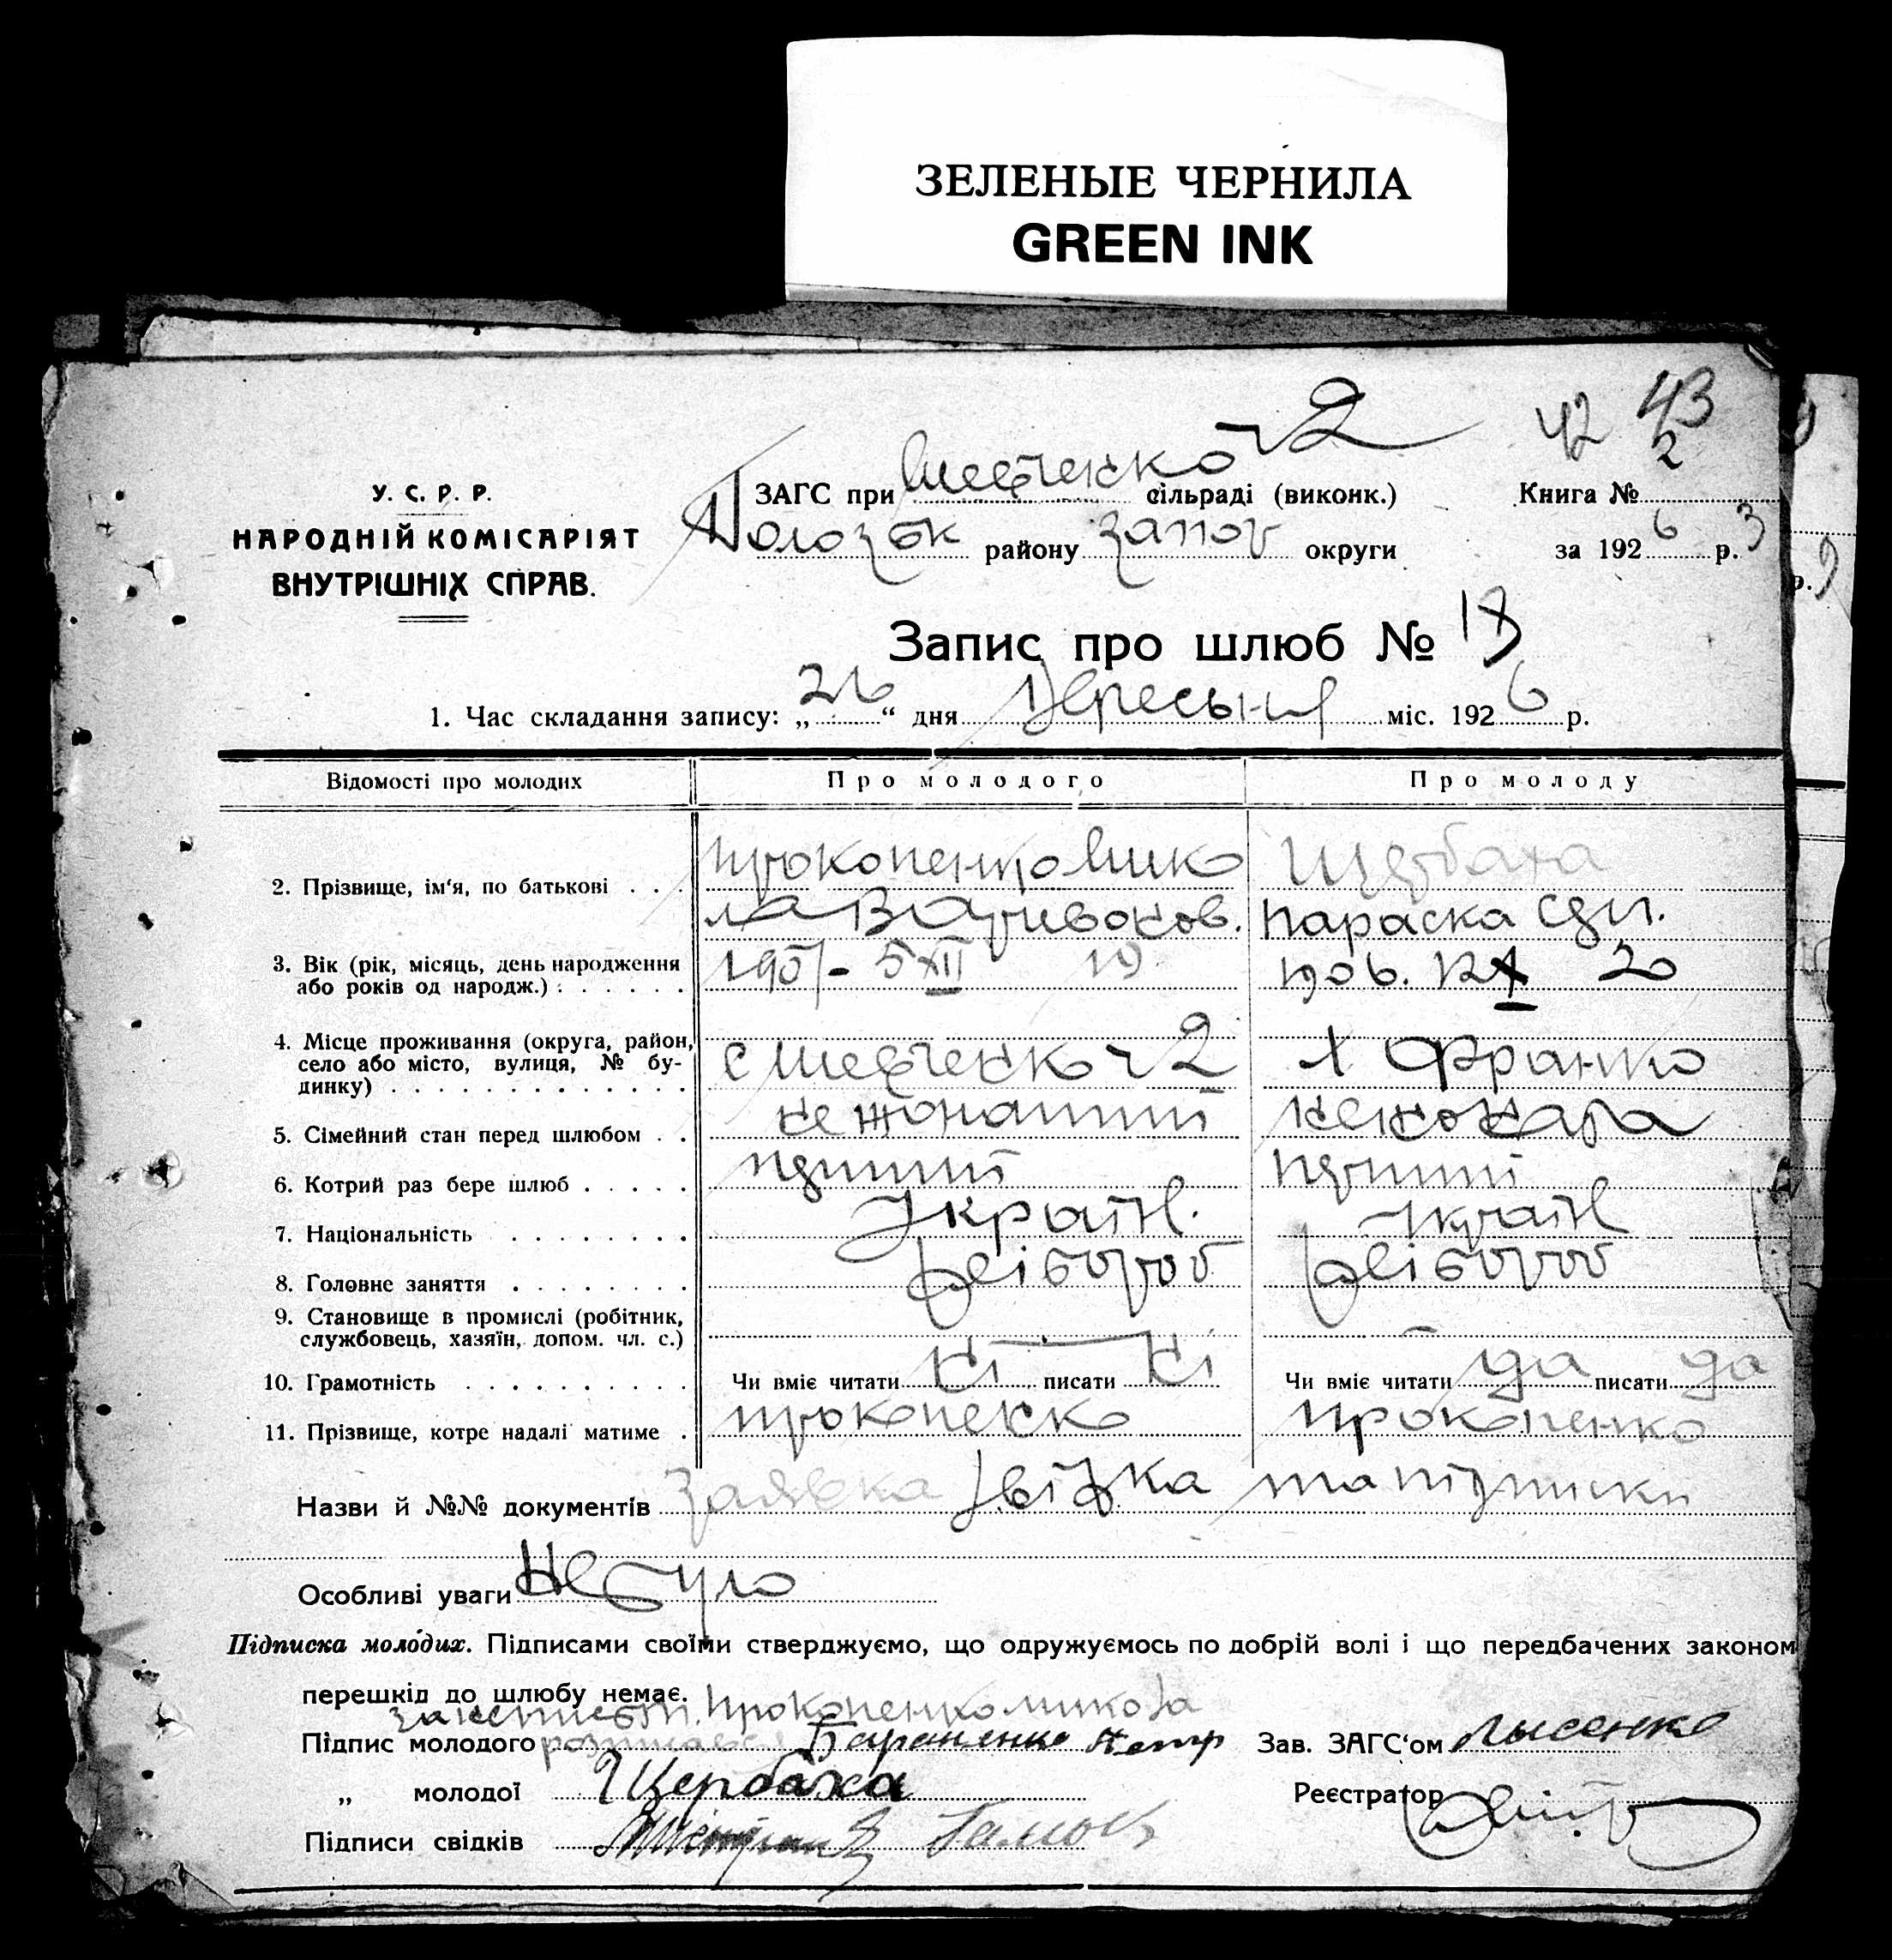 ЗЕЛЕНЫЕ ЧЕРНИЛА
GREEN INK
42 43
2
У. С. Р. Р.
НАРОДНІЙ КОМІСАРІЯТ
ВНУТРІШНІХ СПРАВ.
ЗАГС при Шевченко 2 сільраді (виконк.) Книга №
Пологівк району запор округи за 1926 р. 3
Запис про шлюб № 18
1. Час складання запису: „26“ дня Вересьня міс. 1926 р.
Відомості про молодих Про молодого Про молоду
2. Прізвище, ім'я, по батькові . . . Прокопенко Мико Щербаха
ла Параска
3. Вік (рік, місяць, день народження 1907 - 5 XII 19 1906. 12 X 20
або років од народж.) : . . . . .
4. Місце проживання (округа, район, с Шевченко 2 х Франко
село або місто, вулиця, № бу-
динку) . . . . . . . . . . . . .
5. Сімейний стан перед шлюбом . . не жонатий
6. Котрий раз бере шлюб . . . . . перший перший
7. Національність . . . . . . . . Україн. Україн
8. Головне заняття . . . . . . . . хлібороб хлібороб
9. Становище в промислі (робітник,
службовець, хазяїн, допом. чл. с.)
10. Грамотність . . . . . . . . . . Чи вміє читати ні писати ні Чи вміє читати да писати да
11. Прізвище, котре надалі матиме . Прокопенко Прокопенко
Назви й №№ документів Заявка звідка та підписки
Особливі уваги Не було
Підписка молодих. Підписами своїми стверджуємо, що одружуємось по добрій волі і що передбачених законом
перешкід до шлюбу немає.
Прокопенко Микола
Підпис молодого розписався Бараненко Петр Зав. ЗАГС'ом Лысенко
„ молодої Щербаха Реєстратор
Підписи свідків